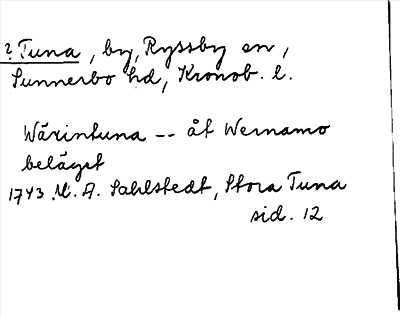 ? Tuna, by, Ryssby sn,
Sunnerbo hd, Kronob. l.
Wärintuna -- åt Wernamo
beläget
1743 M. A. Sahlstedt, Stora Tuna
sid. 12